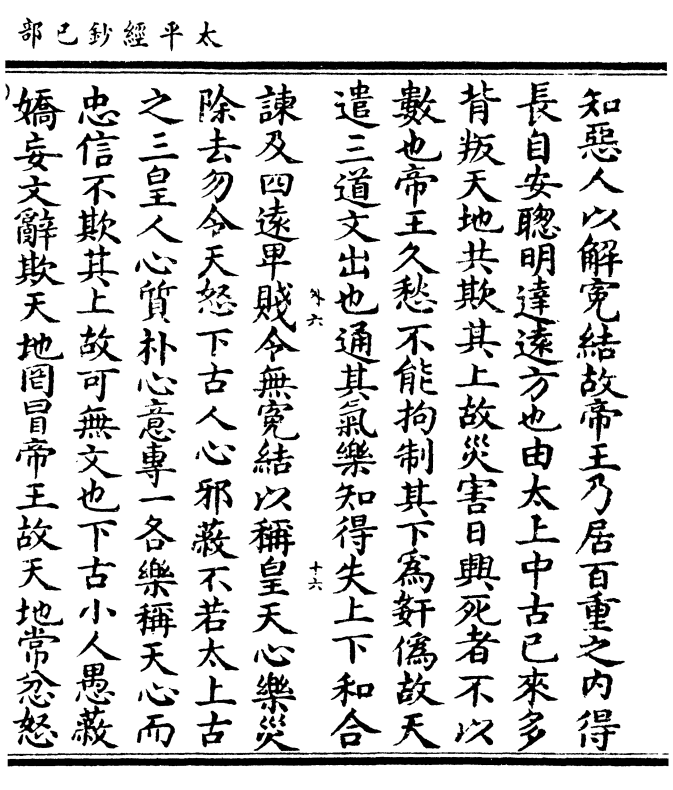 太平經鈔已部
知惡人以解寃結故帝王乃居百重之內得
長自安聰明達遠方也由太上中古已來多
背叛天地共欺其上故災害日興死者不以
數也帝王久愁不能拘制其下爲姧僞故天
遣三道文出也通其氣樂知得失上下和合
外六
十六
諫及四遠卑賤令無寃結以稱皇天心樂災
除去勿令天怒下古人心邪蔽不若太上古
之三皇人心質朴心意專一各樂稱天心而
忠信不欺其上故可無文也下古小人愚蔽
嬌妄文辭欺天地罔冒帝王故天地常忿怒